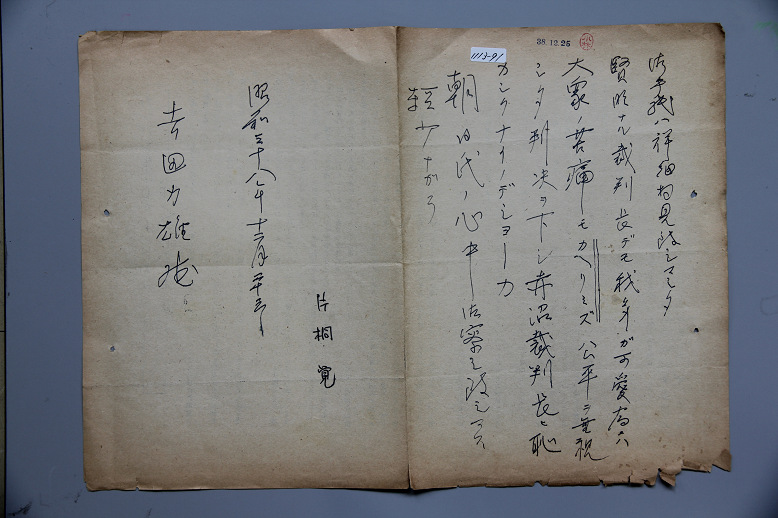 38.12.25
1113-91
御手紙ハ詳細拝見致シマシタ
賢明ナル裁判長デモ我身ガ可愛為ハ
大衆ノ苦痛モカヘリミズ公平ニ重視
シタ判決ヲ下シ赤沼裁判長ヒ恥
カシクナイノデショーカ
朝日氏ノ心中御察シ致シマス
昭和三十八年十二月
片桐寛
吉田力雄